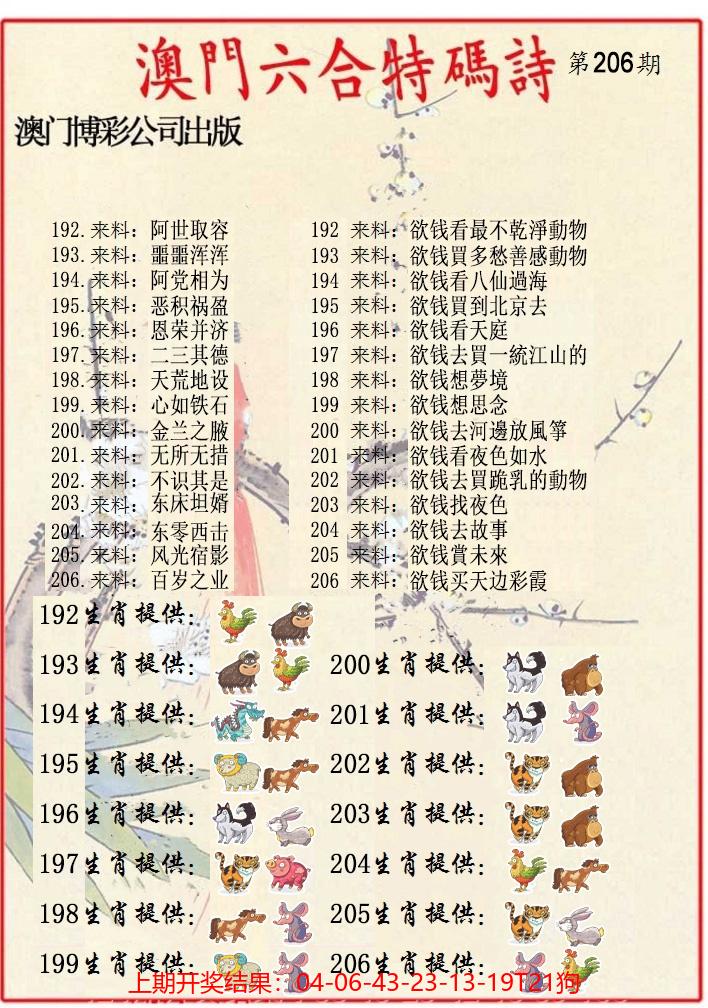 澳門六合特碼詩 第206期
澳门博彩公司出版
192.来料：阿世取容 192 来料：欲钱看最不乾淨動物
193.来料：噩噩浑浑 193 来料：欲钱買多愁善感動物
194.来料：阿党相为 194 来料：欲钱看八仙過海
195.来料：恶积祸盈 195 来料：欲钱買到北京去
196.来料：恩荣并济 196 来料：欲钱看天庭
197.来料：二三其德 197 来料：欲钱去買一統江山的
198.来料：天荒地设 198 来料：欲钱想夢境
199.来料：心如铁石 199 来料：欲钱想思念
200.来料：金兰之腋 200 来料：欲钱去河邊放風箏
201.来料：无所无措 201 来料：欲钱看夜色如水
202.来料：不识其是 202 来料：欲钱去買跪乳的動物
203.来料：东床坦婿 203 来料：欲钱找夜色
204.来料：东零西击 204 来料：欲钱去故事
205.来料：风光宿影 205 来料：欲钱賞未來
206.来料：百岁之业 206 来料：欲钱买天边彩霞
192生肖提供：
193生肖提供： 200生肖提供：
194生肖提供： 201生肖提供：
195生肖提供： 202生肖提供：
196生肖提供： 203生肖提供：
197生肖提供： 204生肖提供：
198生肖提供： 205生肖提供：
199生肖提供： 206生肖提供：
上期开奖结果：04-06-43-23-13-19T21狗